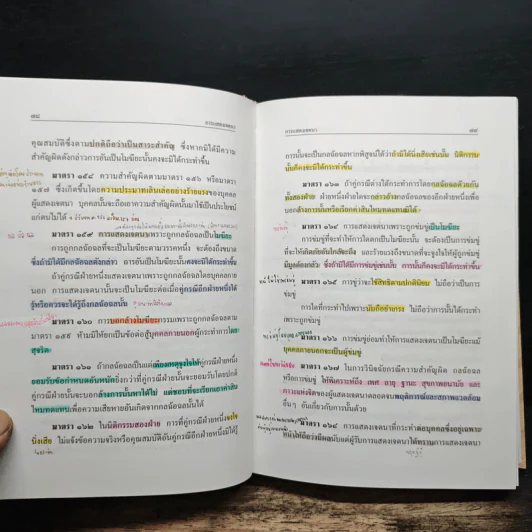 ๗๘
การแสดงเจตนา
คุณสมบัติซึ่งตามปกติถือว่าเป็นสาระสำคัญ ซึ่งหากมิได้มีความ
สำคัญผิดดังกล่าวการอันเป็นโมฆียะนั้นคงจะมิได้กระทำขึ้น
มาตรา ๑๕๘ ความสำคัญผิดตามมาตรา ๑๕๖ หรือมาตรา
๑๕๗ ซึ่งเกิดขึ้นโดยความประมาทเลินเล่ออย่างร้ายแรงของบุคคล
ผู้แสดงเจตนา บุคคลนั้นจะถือเอาความสำคัญผิดนั้นมาใช้เป็นประโยชน์
แก่ตนไม่ได้
มาตรา ๑๕๙ การแสดงเจตนาเพราะถูกกลฉ้อฉลเป็นโมฆียะ
การถูกกลฉ้อฉลที่จะเป็นโมฆียะตามวรรคหนึ่ง จะต้องถึงขนาด
ซึ่งถ้ามิได้มีกลฉ้อฉลดังกล่าว การอันเป็นโมฆียะนั้นคงจะมิได้กระทำขึ้น
ถ้าคู่กรณีฝ่ายหนึ่งแสดงเจตนาเพราะถูกกลฉ้อฉลโดยบุคคลภาย
นอก การแสดงเจตนานั้นจะเป็นโมฆียะต่อเมื่อคู่กรณีอีกฝ่ายหนึ่งได้
รู้หรือควรจะได้รู้ถึงกลฉ้อฉลนั้น
มาตรา ๑๖๐ การบอกล้างโมฆียะกรรมเพราะถูกกลฉ้อฉลตาม
มาตรา ๑๕๙ ห้ามมิให้ยกเป็นข้อต่อสู้บุคคลภายนอกผู้กระทำการโดย
สุจริต
มาตรา ๑๖๑ ถ้ากลฉ้อฉลเป็นแต่เพียงเหตุจูงใจให้คู่กรณีฝ่ายหนึ่ง
ยอมรับข้อกำหนดอันหนักยิ่งกว่าที่คู่กรณีฝ่ายนั้นจะยอมรับโดยปกติ
คู่กรณีฝ่ายนั้นจะบอกล้างการนั้นหาได้ไม่ แต่ชอบที่จะเรียกเอาค่าสิน
ไหมทดแทนเพื่อความเสียหายอันเกิดจากกลฉ้อฉลนั้นได้
มาตรา ๑๖๒ ในนิติกรรมสองฝ่าย การที่คู่กรณีฝ่ายหนึ่งจงใจ
นิ่งเสีย ไม่แจ้งข้อความจริงหรือคุณสมบัติอันคู่กรณีอีกฝ่ายหนึ่งมิได้รู้
การแสดงเจตนา
๗๙
การนั้นจะเป็นกลฉ้อฉลหากพิสูจน์ได้ว่าถ้ามิได้นิ่งเสียเช่นนั้น นิติกรรม
นั้นก็คงจะมิได้กระทำขึ้น
มาตรา ๑๖๓ ถ้าคู่กรณีต่างได้กระทำการโดยกลฉ้อฉลด้วยกัน
ทั้งสองฝ่าย ฝ่ายหนึ่งฝ่ายใดจะกล่าวอ้างกลฉ้อฉลของอีกฝ่ายหนึ่งเพื่อบอก
ล้างการนั้นหรือเรียกค่าสินไหมทดแทนมิได้
มาตรา ๑๖๔ การแสดงเจตนาเพราะถูกข่มขู่เป็นโมฆียะ
การข่มขู่ที่จะทำให้การใดตกเป็นโมฆียะนั้น จะต้องเป็นการข่มขู่
ที่จะให้เกิดภัยอันใกล้จะถึง และร้ายแรงถึงขนาดที่จะจูงใจให้ผู้ถูกข่มขู่
มีมูลต้องกลัว ซึ่งถ้ามิได้มีการข่มขู่เช่นนั้น การนั้นก็คงจะมิได้กระทำขึ้น
มาตรา ๑๖๕ การขู่ว่าจะใช้สิทธิตามปกตินิยม ไม่ถือว่าเป็นการ
ข่มขู่
การใดที่กระทำไปเพราะนับถือยำเกรง ไม่ถือว่าการนั้นได้กระทำ
เพราะถูกข่มขู่
การข่มขู่ย่อมทำให้การแสดงเจตนาเป็นโมฆียะแม้
บุคคลภายนอกจะเป็นผู้ข่มขู่
ในการวินิจฉัยกรณีความสำคัญผิด กลฉ้อฉล
หรือการข่มขู่ ให้พิเคราะห์ถึง เพศ อายุ ฐานะ สุขภาพอนามัย และ
ภาวะแห่งจิตของผู้แสดงเจตนาตลอดจนพฤติการณ์และสภาพแวดล้อม
อื่นๆ อันเกี่ยวกับการนั้นด้วย
มาตรา ๑๖๘ การแสดงเจตนาที่กระทำต่อบุคคลซึ่งอยู่เฉพาะ
หน้าให้ถือว่ามีผลนับแต่ผู้รับการแสดงเจตนาได้ทราบการแสดงเจตนา